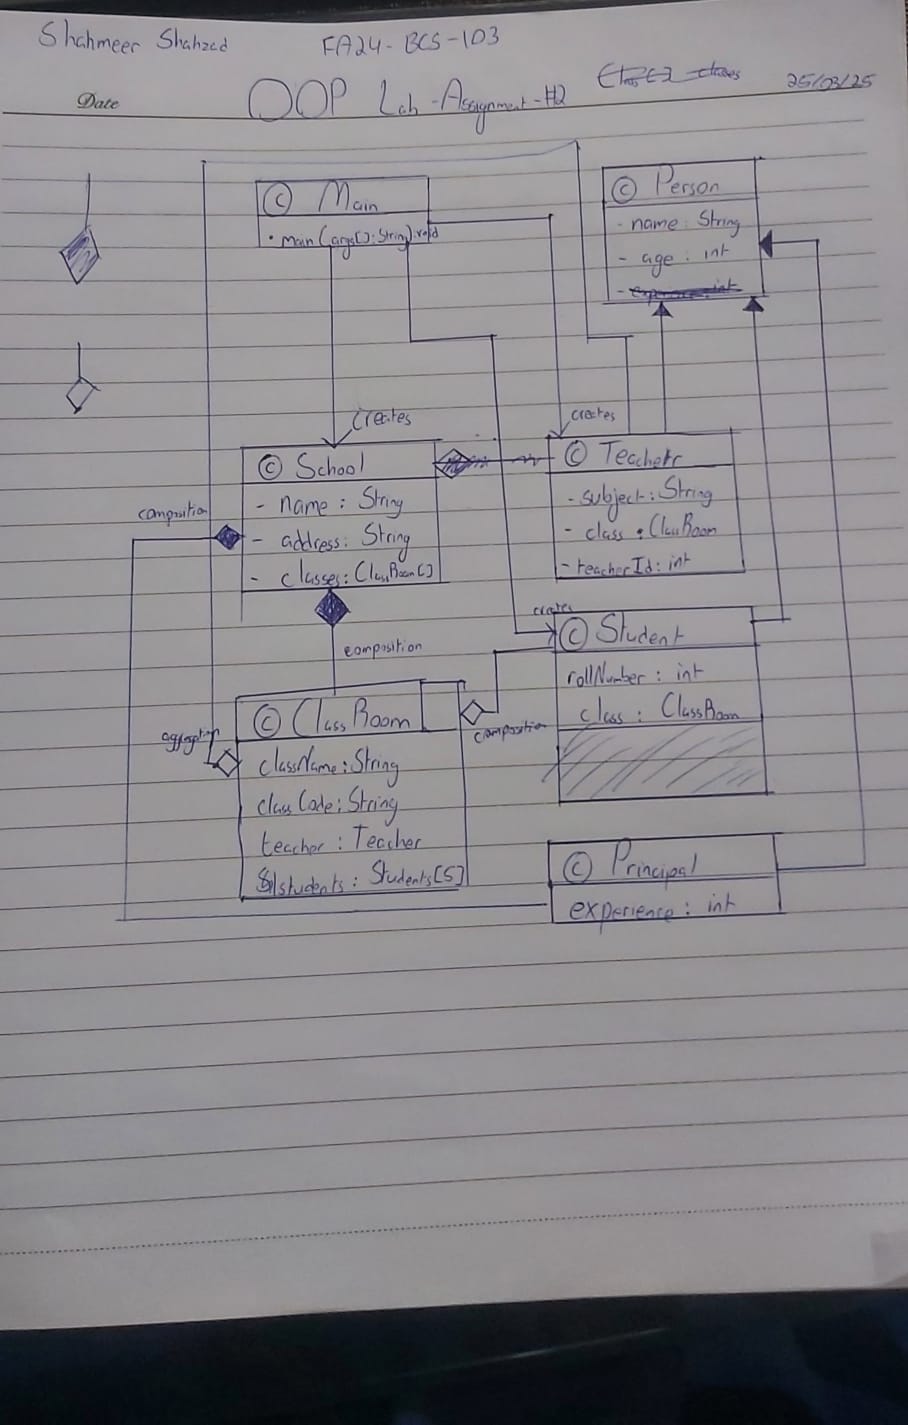 Shahmeer Shahzad FA24-BCS-103
Date OOP Lab -Assignment-#2 classes 25/03/25
© Main
• main(args[]:String):void
© Person
- name : String
- age : int
- experience: int
creates
creates
© School
- name : String
- address: String
- classes: ClassRoom[]
© Teacher
- subject: String
- class : ClassRoom
- teacherId: int
composition
composition
creates
© Student
rollNumber : int
class : ClassRoom
composition
aggregation
© ClassRoom
className: String
classCode: String
teacher : Teacher
students : Students[5]
© Principal
experience: int